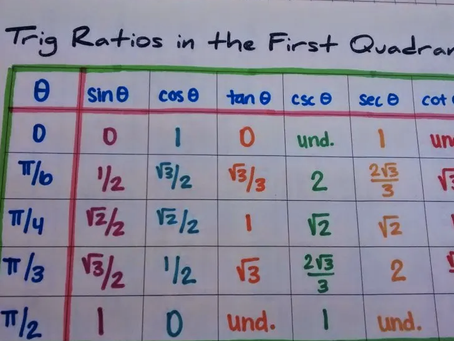 Trig Ratios in the First Quadran
θ sin θ cos θ tan θ csc θ sec θ cot
0 0 1 0 und. 1 un
π/6 1/2 √3/2 √3/3 2 2√3/3 √3
π/4 √2/2 √2/2 1 √2 √2
π/3 √3/2 1/2 √3 2√3/3 2
π/2 1 0 und. 1 und.